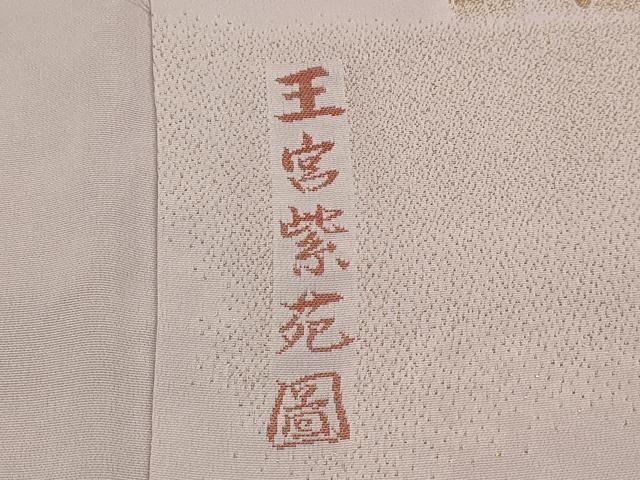 王宮紫苑圖